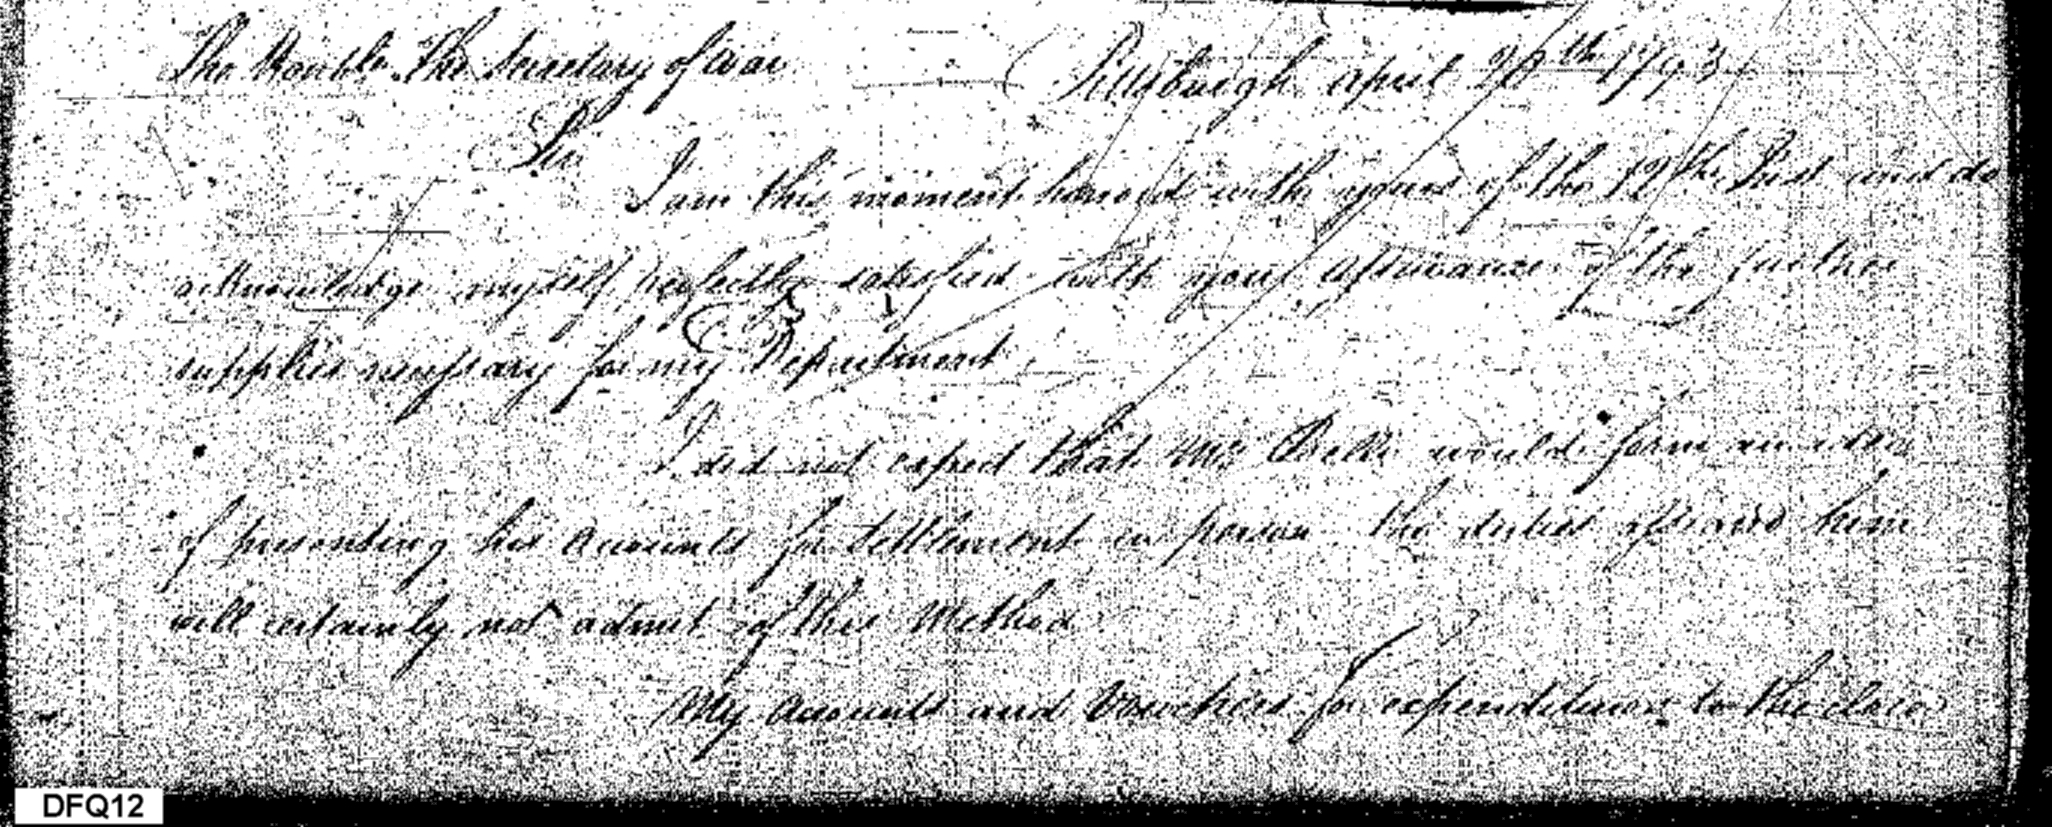 The Honble. The Secretary of War Pittsburgh April 20th 1793
Sir
I am this moment honored with yours of the 12th Inst and do
acknowledge myself perfectly satisfied with your assurance of the further
supplies necessary for my Department
I did not expect that Mr would form an idea
of presenting his Accounts for settlement in person the duties assigned him
will certainly not admit of this Method
My Accounts and Vouchers for expenditures to the close
DFQ12